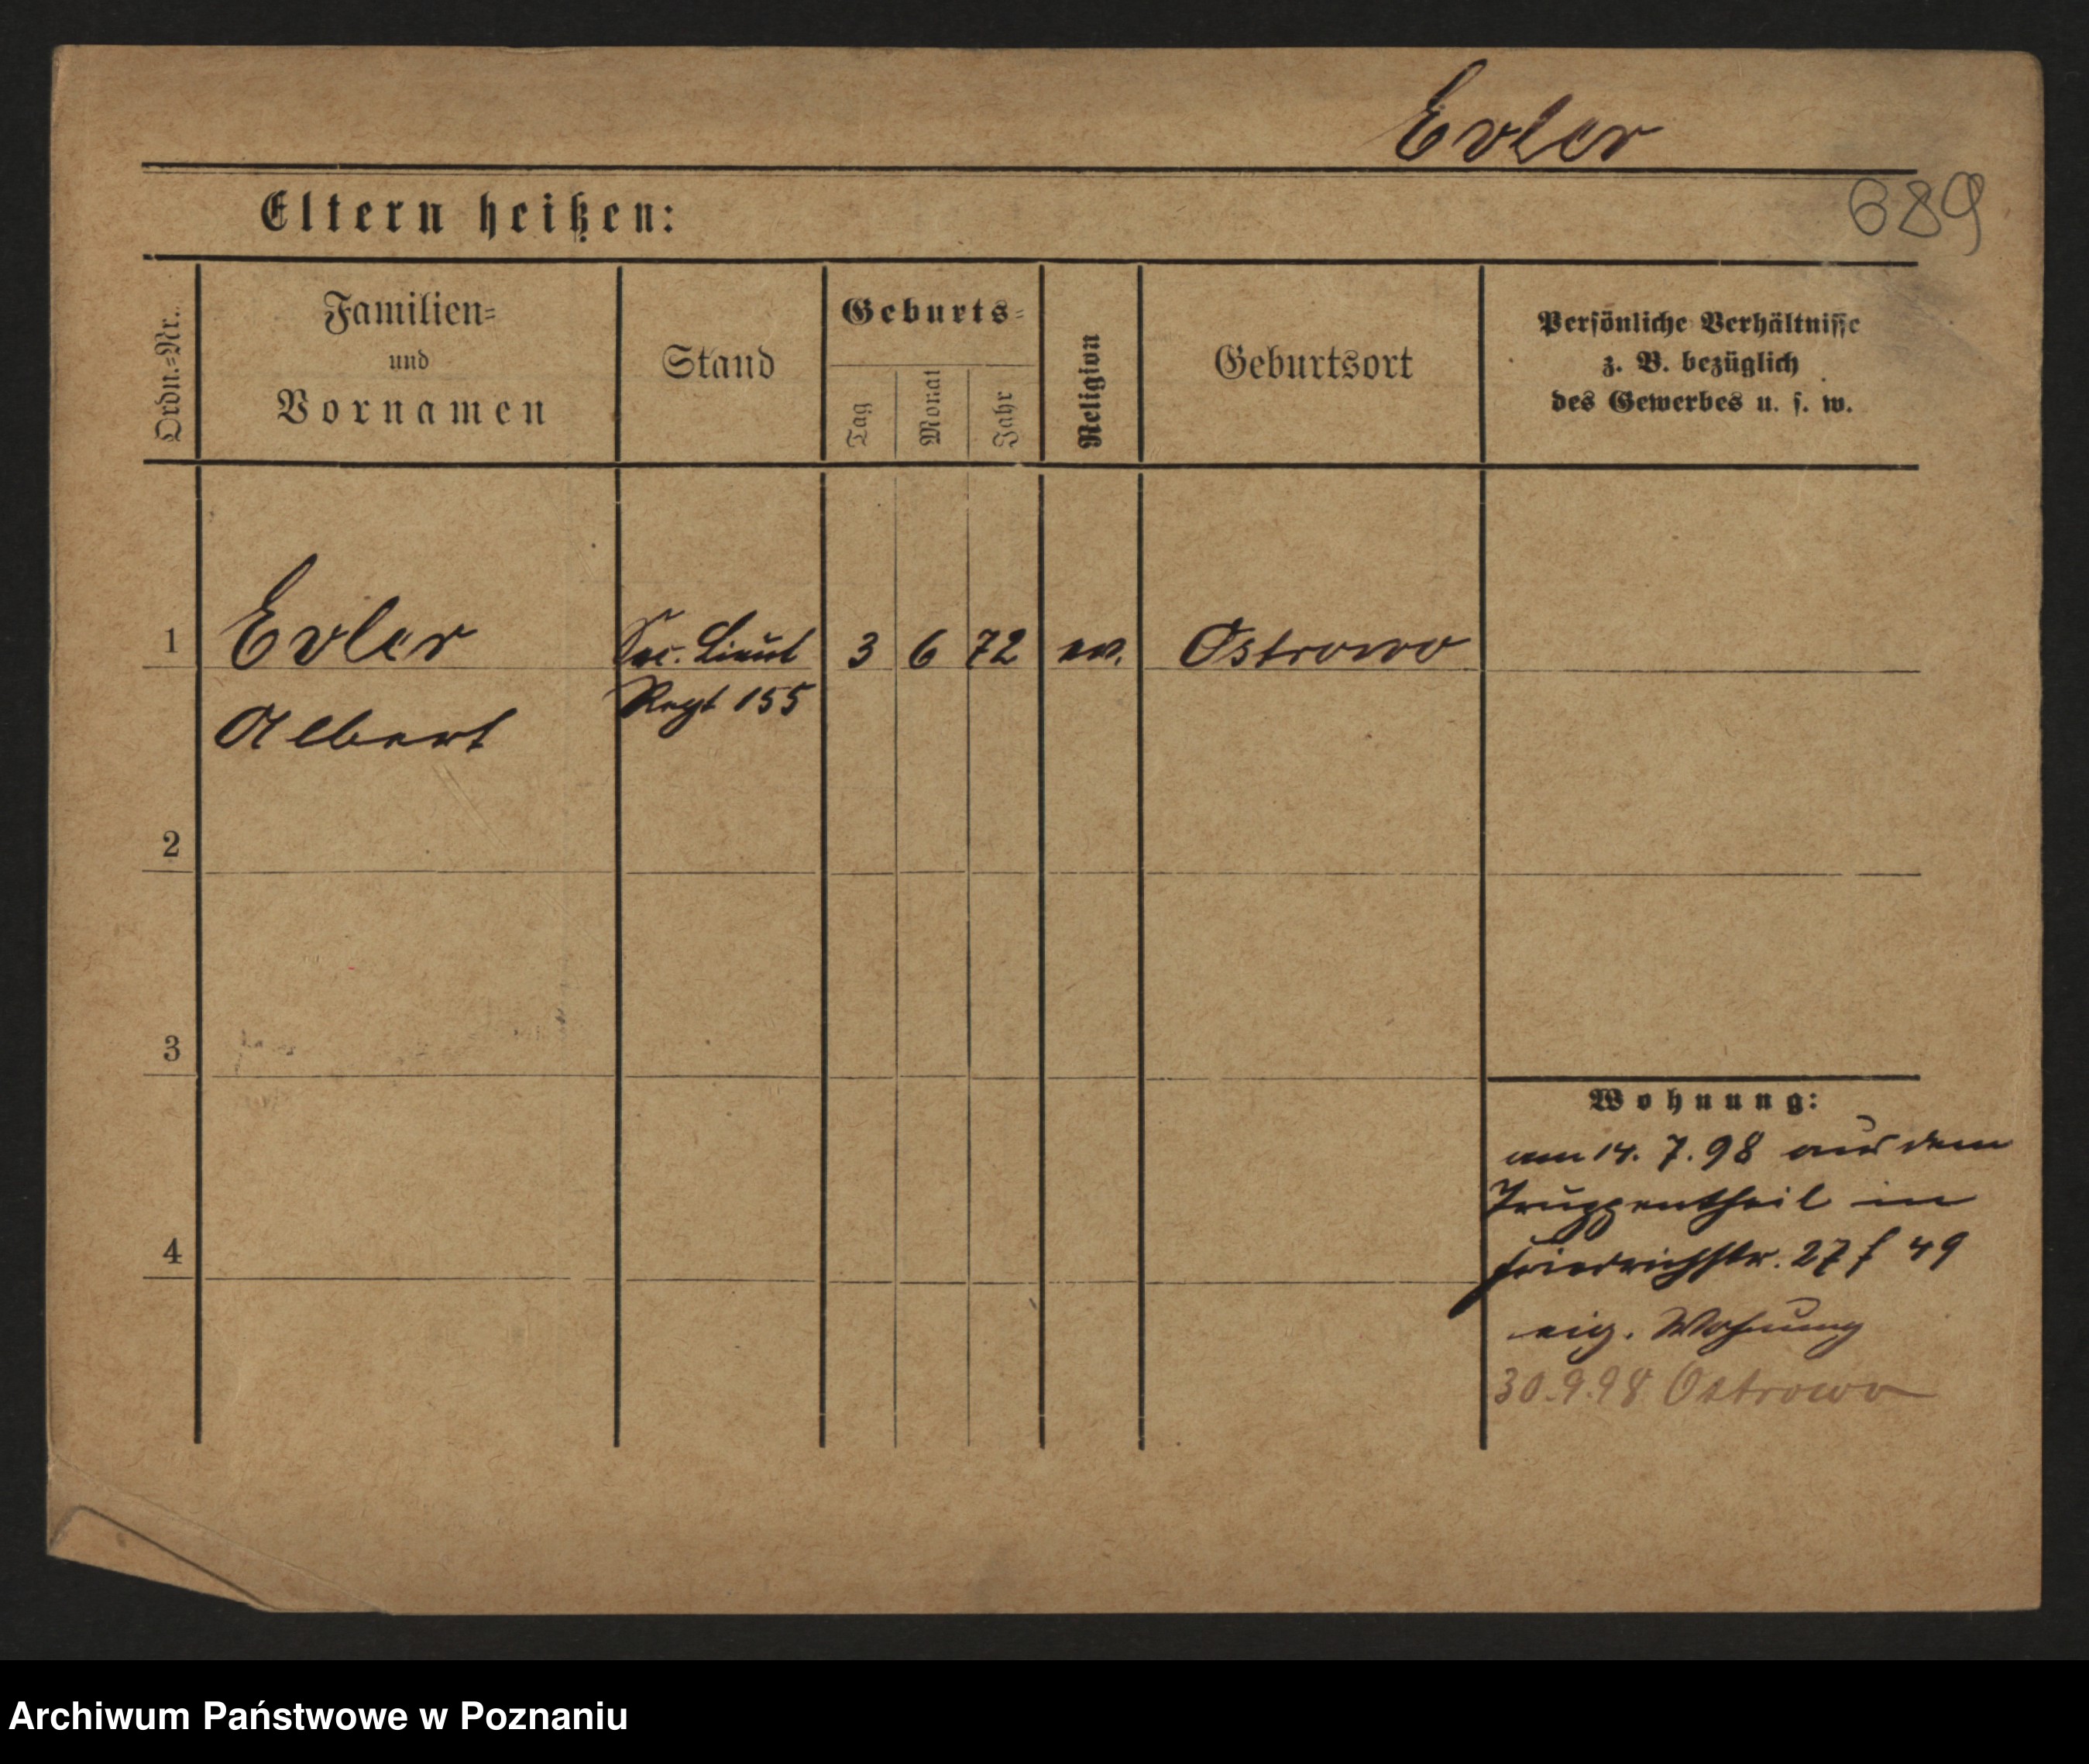 Evler
689
Eltern heißen:
Ordn.-Nr.
Familien-
und
Vornamen
Stand
Geburts-
Tag
Monat
Jahr
Religion
Geburtsort
Persönliche Verhältnisse
z. B. bezüglich
des Gewerbes u. s. w.
1 Evler Sec. Lieut 3 6 72 ev. Ostrowo
Albert Regt 155
2
3
4
Wohnung:
am 14. 7. 98 aus dem
Truppentheil in
Friedrichstr. 27 49
eig. Wohnung
30.9.98 Ostrowo
Archiwum Państwowe w Poznaniu